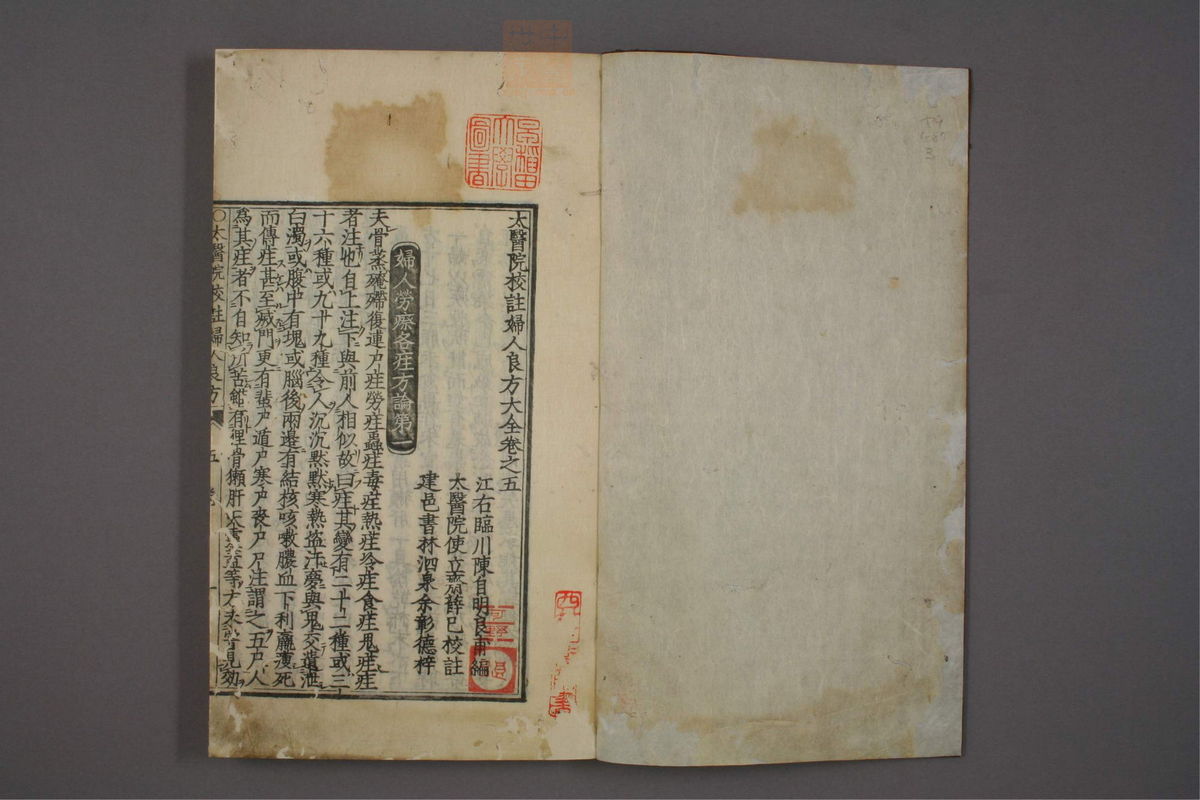 太醫院校註婦人良方大全卷之五
江右臨川陳自明良甫編
太醫院使立齋薛己校註
建邑書林泗泉余彰德梓
婦人勞瘵各疰方論第一
夫骨蒸殗殜復連尸疰勞疰蟲疰毒疰熱疰冷疰食疰鬼疰疰
者注也自上注下與前人相似故曰疰其變有二十二種或三
十六種或九十九種令人沉沉默默寒熱盜汗夢與鬼交遺泄
白濁或腹中有塊或腦後兩邊有結核咳嗽膿血下利羸瘦死
而傳疰甚至滅門更有蜚尸遁尸寒尸喪尸尸注謂之五尸人
為其疰者不自知所苦雖有狸骨獺肝天靈蓋等方未嘗見効
○太醫院校註婦人良方 五卷 一
早稻田大學圖書